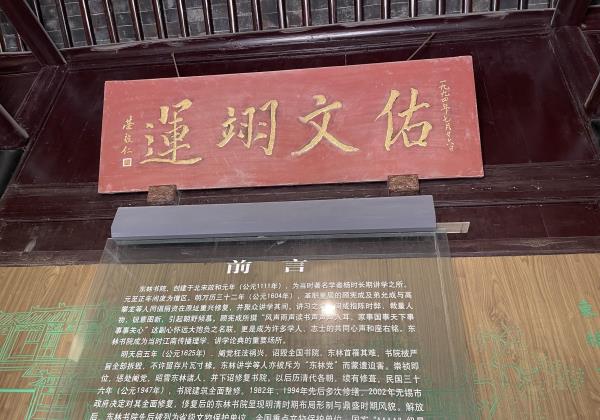 佑文翊運
一九九四年七月廿六日
荣毅仁
前言
东林书院,创建于北宋政和元年(公元1111年),为当时著名学者杨时长期讲学之所。
元至正年间废为僧区。明万历三十二年(公元1604年),革职里居的顾宪成及弟允成与高
攀龙等人同倡捐资在原址重兴修复,并聚众讲学其间。讲习之余,间或指陈时弊,裁量人
物,锐意图新,引起朝野倾慕。顾宪成所撰“风声雨声读书声声声入耳,家事国事天下事
事事关心”这副心怀远大抱负之名联,更是成为许多学人、志士的共同心声和座右铭。东
林书院成为当时江南传播理学、讲学论典的重要场所。
明天启五年(公元1625年),阉党枉法祸兴,诏毁全国书院。东林首罹其难,书院被严
旨全部拆毁,不许留存片瓦寸椽。东林讲学等人亦被斥为“东林党”而蒙遭迫害。崇祯即
位,惩处阉党,昭雪东林诸人,并下诏修复书院,以后历清代各朝,续有修葺。民国三十
六年(公元1947年),书院建筑全面整修,1982年、1994年先后多次修缮。2002年无锡市
政府决定对其全面修复,修复后的东林书院呈现明清时期布局形制与鼎盛时期风貌。解放
后,东林书院先后被列为省级文物保护单位、全国重点文物保护单位、国家“AAAA”级景